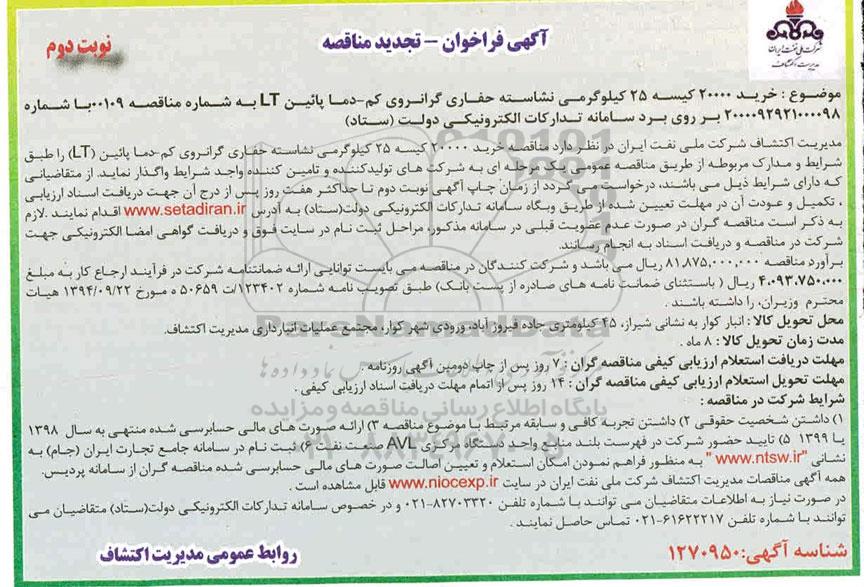 شرکت ملی نفت ایران
مدیریت اکتشاف
آگهی فراخوان – تجدید مناقصه
نوبت دوم
موضوع : خرید ۲۰۰۰۰ کیسه ۲۵ کیلوگرمی نشاسته حفاری گرانروی کم-دما پائین LT به شماره مناقصه ۰۰۱۰۹با شماره
۲۰۰۰۰۹۲۹۲۱۰۰۰۰۹۸ بر روی برد سامانه تدارکات الکترونیکی دولت (ستاد)
مدیریت اکتشاف شرکت ملی نفت ایران در نظر دارد مناقصه خرید ۲۰۰۰۰ کیسه ۲۵ کیلوگرمی نشاسته حفاری گرانروی کم-دما پائین (LT) را طبق
شرایط و مدارک مربوطه از طریق مناقصه عمومی یک مرحله ای به شرکت های تولیدکننده و تامین کننده واجد شرایط واگذار نماید. از متقاضیانی
که دارای شرایط ذیل می باشند، درخواست می گردد از زمان چاپ آگهی نوبت دوم تا حداکثر هفت روز پس از درج آن جهت دریافت اسناد ارزیابی
، تکمیل و عودت آن در مهلت تعیین شده از طریق وبگاه سامانه تدارکات الکترونیکی دولت(ستاد) به آدرس www.setadiran.ir اقدام نمایند .لازم
به ذکر است مناقصه گران در صورت عدم عضویت قبلی در سامانه مذکور، مراحل ثبت نام در سایت فوق و دریافت گواهی امضا الکترونیکی جهت
شرکت در مناقصه و دریافت اسناد به انجام رسانند.
برآورد مناقصه ۸۱,۸۷۵,۰۰۰,۰۰۰ ریال می باشد و شرکت کنندگان در مناقصه می بایست توانایی ارائه ضمانتنامه شرکت در فرآیند ارجاع کار به مبلغ
۴,۰۹۳,۷۵۰,۰۰۰ ریال ( باستثنای ضمانت نامه های صادره از پست بانک) طبق تصویب نامه شماره ۱۲۳۴۰۲/ت ۵۰۶۵۹ ه مورخ ۱۳۹۴/۰۹/۲۲ هیات
محترم وزیران، را داشته باشند .
محل تحویل کالا : انبار کوار به نشانی شیراز، ۴۵ کیلومتری جاده فیروز آباد، ورودی شهر کوار، مجتمع عملیات انبارداری مدیریت اکتشاف.
مدت زمان تحویل کالا : ۸ ماه .
مهلت دریافت استعلام ارزیابی کیفی مناقصه گران : ۷ روز پس از چاپ دومین آگهی روزنامه .
مهلت تحویل استعلام ارزیابی کیفی مناقصه گران : ۱۴ روز پس از اتمام مهلت دریافت اسناد ارزیابی کیفی .
شرایط شرکت در مناقصه :
۱) داشتن شخصیت حقوقی ۲) داشتن تجربه کافی و سابقه مرتبط با موضوع مناقصه ۳) ارائه صورت های مالی حسابرسی شده منتهی به سال ۱۳۹۸
یا ۱۳۹۹ ۵) تایید حضور شرکت در فهرست بلند منابع واحد دستگاه مرکزی AVL صنعت نفت ۶) ثبت نام در سامانه جامع تجارت ایران (جام) به
نشانی "www.ntsw.ir" به منظور فراهم نمودن امکان استعلام و تعیین اصالت صورت های مالی حسابرسی شده مناقصه گران از سامانه پردیس.
همه آگهی مناقصات مدیریت اکتشاف شرکت ملی نفت ایران در سایت www.niocexp.ir قابل مشاهده است .
در صورت نیاز به اطلاعات متقاضیان می توانند با شماره تلفن ۸۲۷۰۳۳۲۰-۰۲۱ و در خصوص سامانه تدارکات الکترونیکی دولت(ستاد) متقاضیان می
توانند با شماره تلفن ۶۱۶۲۲۲۱۷-۰۲۱ تماس حاصل نمایند .
شناسه آگهی: ۱۲۷۰۹۵۰
روابط عمومی مدیریت اکتشاف
ParsNamadData
پایگاه اطلاع رسانی مناقصه و مزایده